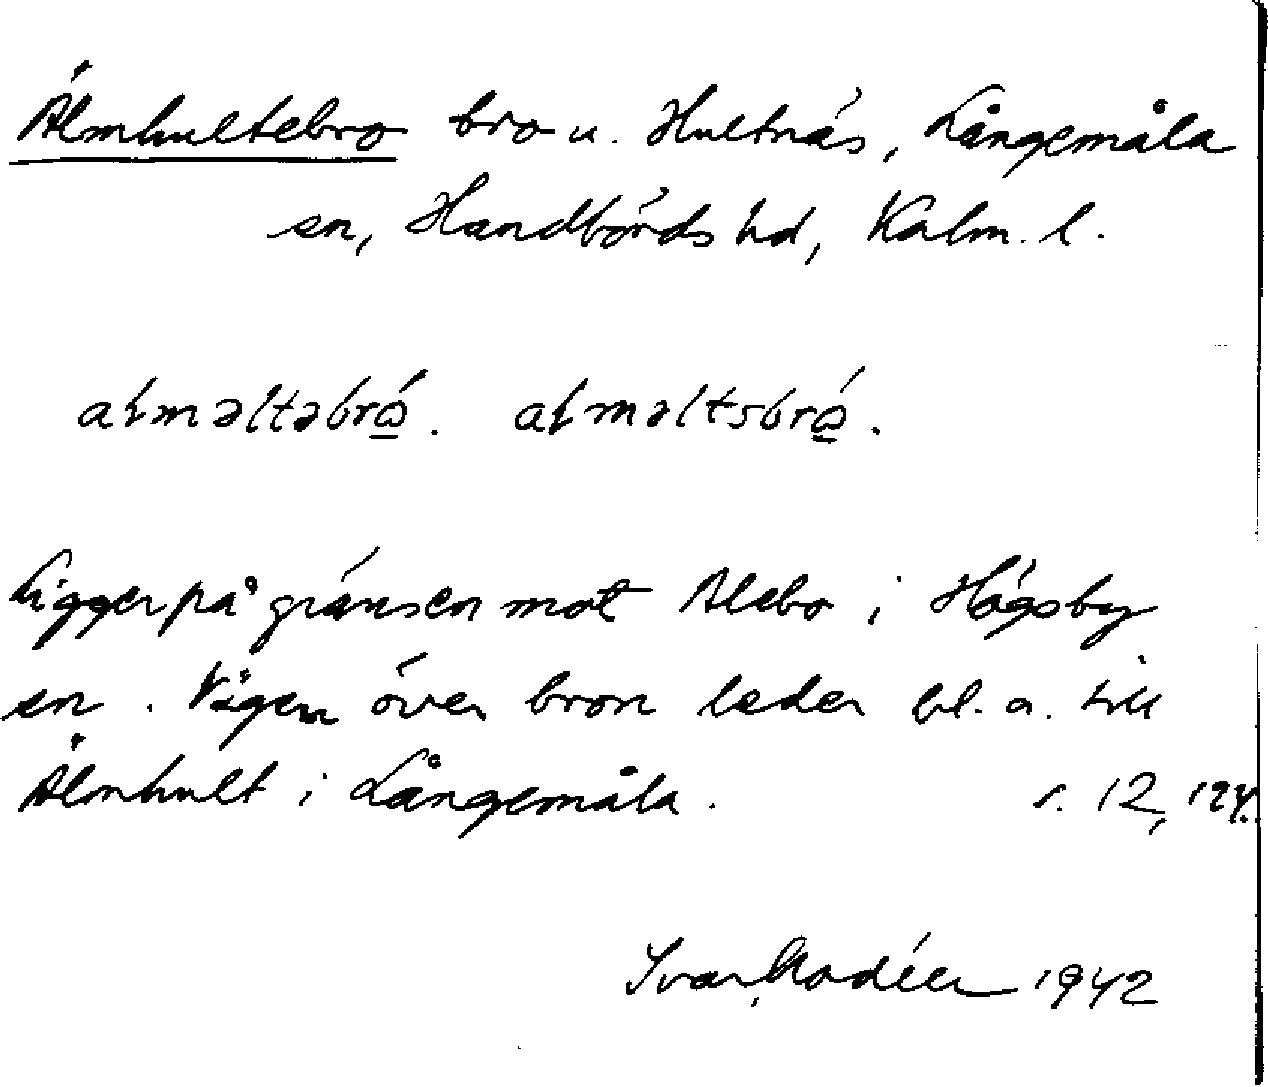 Älmhultebro bro u. Hultnäs, Långemåla
sn, Handbörds hd, Kalm. l.
aƚməltəbrώ̲. aƚməltsbrώ̲.
Ligger på gränsen mot Alebo i Högsby
sn. Vägen över bron leder bl. a. till
Älmhult i Långemåla. s. 12, 124.
Ivar Modéer 1942